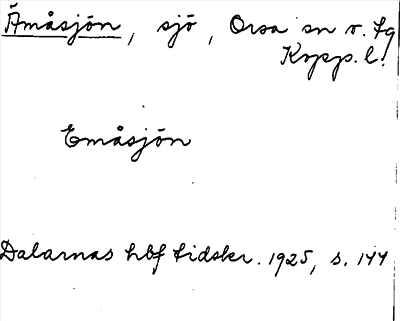 Ämåsjön, sjö, Orsa sn o. tg
Kopp. l.
Emåsjön
Dalarnas hbf tidskr. 1925, s. 144